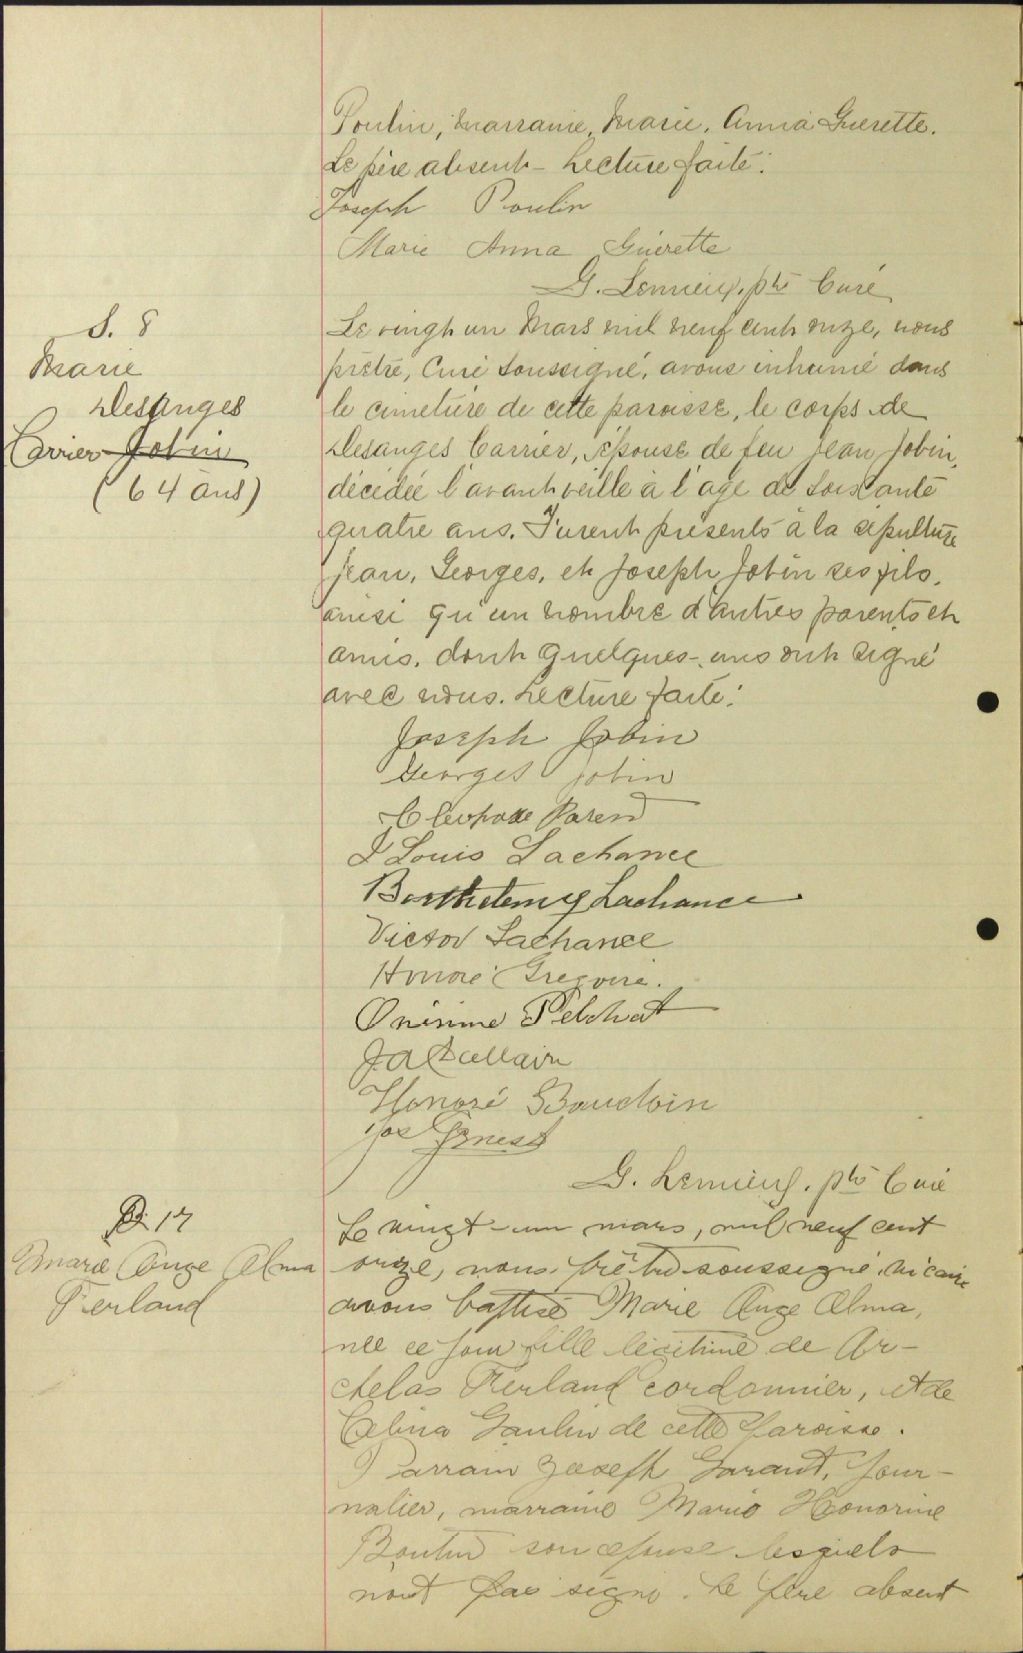 Poulin, marraine, Marie. Anna Guerette.
Le père absent - Lecture faite.
Joseph Poulin
Marie Anna Guérette
G. Lemieux, ptre Curé
S. 8
Marie
Desanges
Carrier Jobin
(64 ans)
Le vingt un Mars mil neuf cent onze, nous
prêtre, Curé soussigné, avons inhumé dans
le cimetière de cette paroisse, le corps de
Desanges Carrier, épouse de feu Jean Jobin,
décédée l'avant veille à l'age de soixante
quatre ans. Furent présents à la sépulture
Jean, Georges, et Joseph Jobin ses fils,
ainsi qu'un nombre d'autres parents et
amis, dont quelques-uns ont signé
avec nous. Lecture faite.
Joseph Jobin
Georges Jobin
Cleophase Parent
J Louis Lachance
Barthelemy Lachance
Victor Lachance
Honoré Gregoire.
Onésime Pelchat
J.A. Dallaire
Honoré Baudoin
Jos Genest
G. Lemieux, ptre Curé
B. 17
Marie Ange Alma
Ferland
Le vingt-un mars, mil neuf cent
onze, nous, prêtre soussigné, vicaire
avons baptisé Marie Ange Alma,
née ce jour fille légitime de Ar-
chelas Ferland cordonnier, et de
Celina Gaulin de cette paroisse.
Parrain Joseph Garant, jour-
nalier, marraine Marie Honorine
Boutin son épouse lesquels
n'ont pas signé. Le père absent